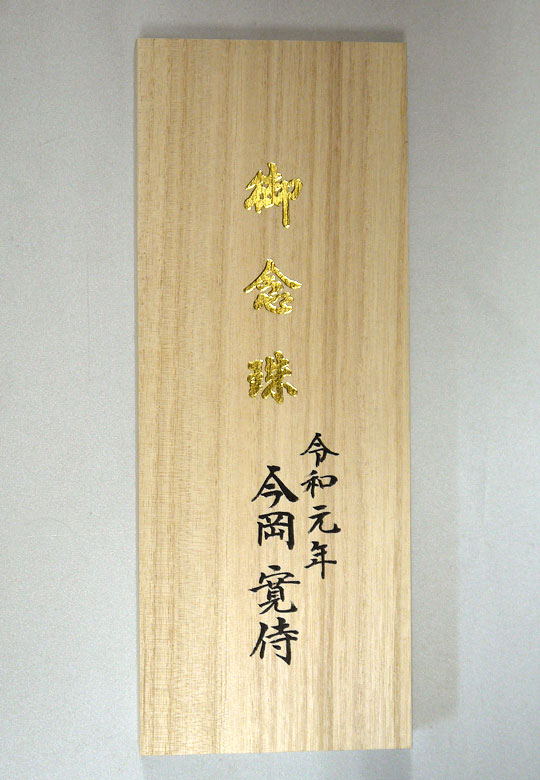 御念珠
令和元年
今岡寛侍